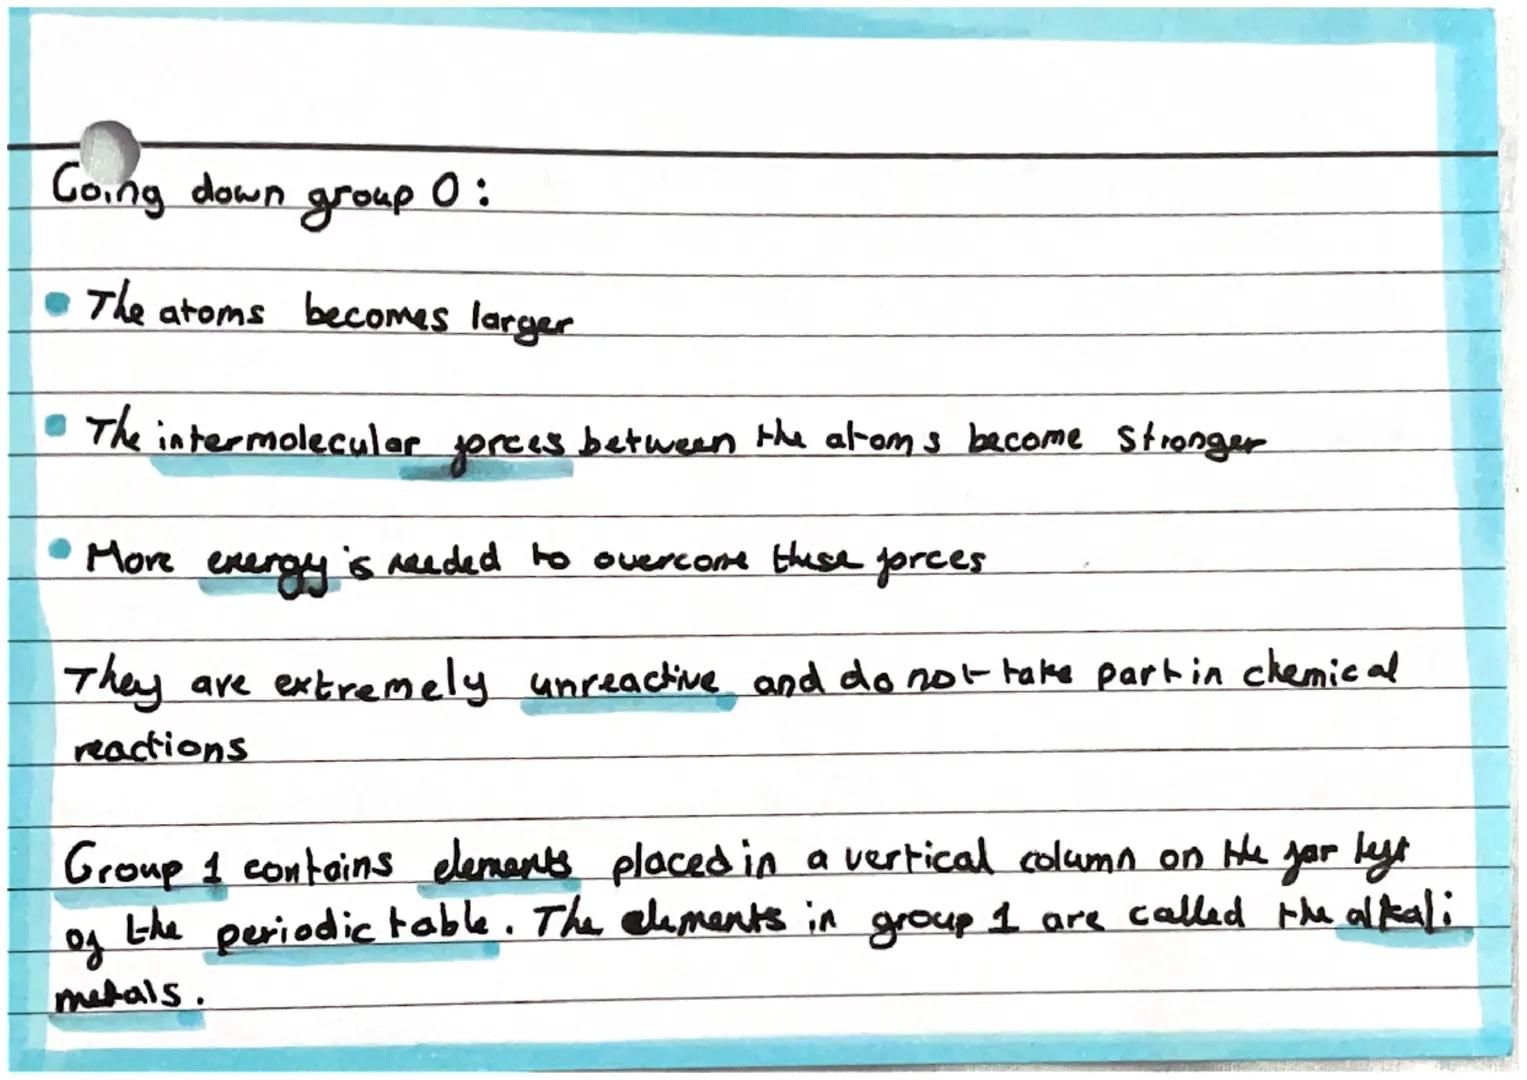 Going down group 0:
• The atoms becomes larger
• The intermolecular forces between the atoms become stronger
• More energy is needed to overcome these forces
They are extremely unreactive and do not take part in chemical
reactions
Group 1 contains elements placed in a vertical column on the far left
of the periodic table. The elements in group 1 are called the alkali
metals.